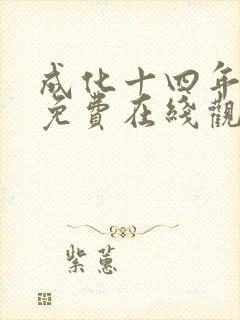 成化十四年
免費在綫觀
紫蕙